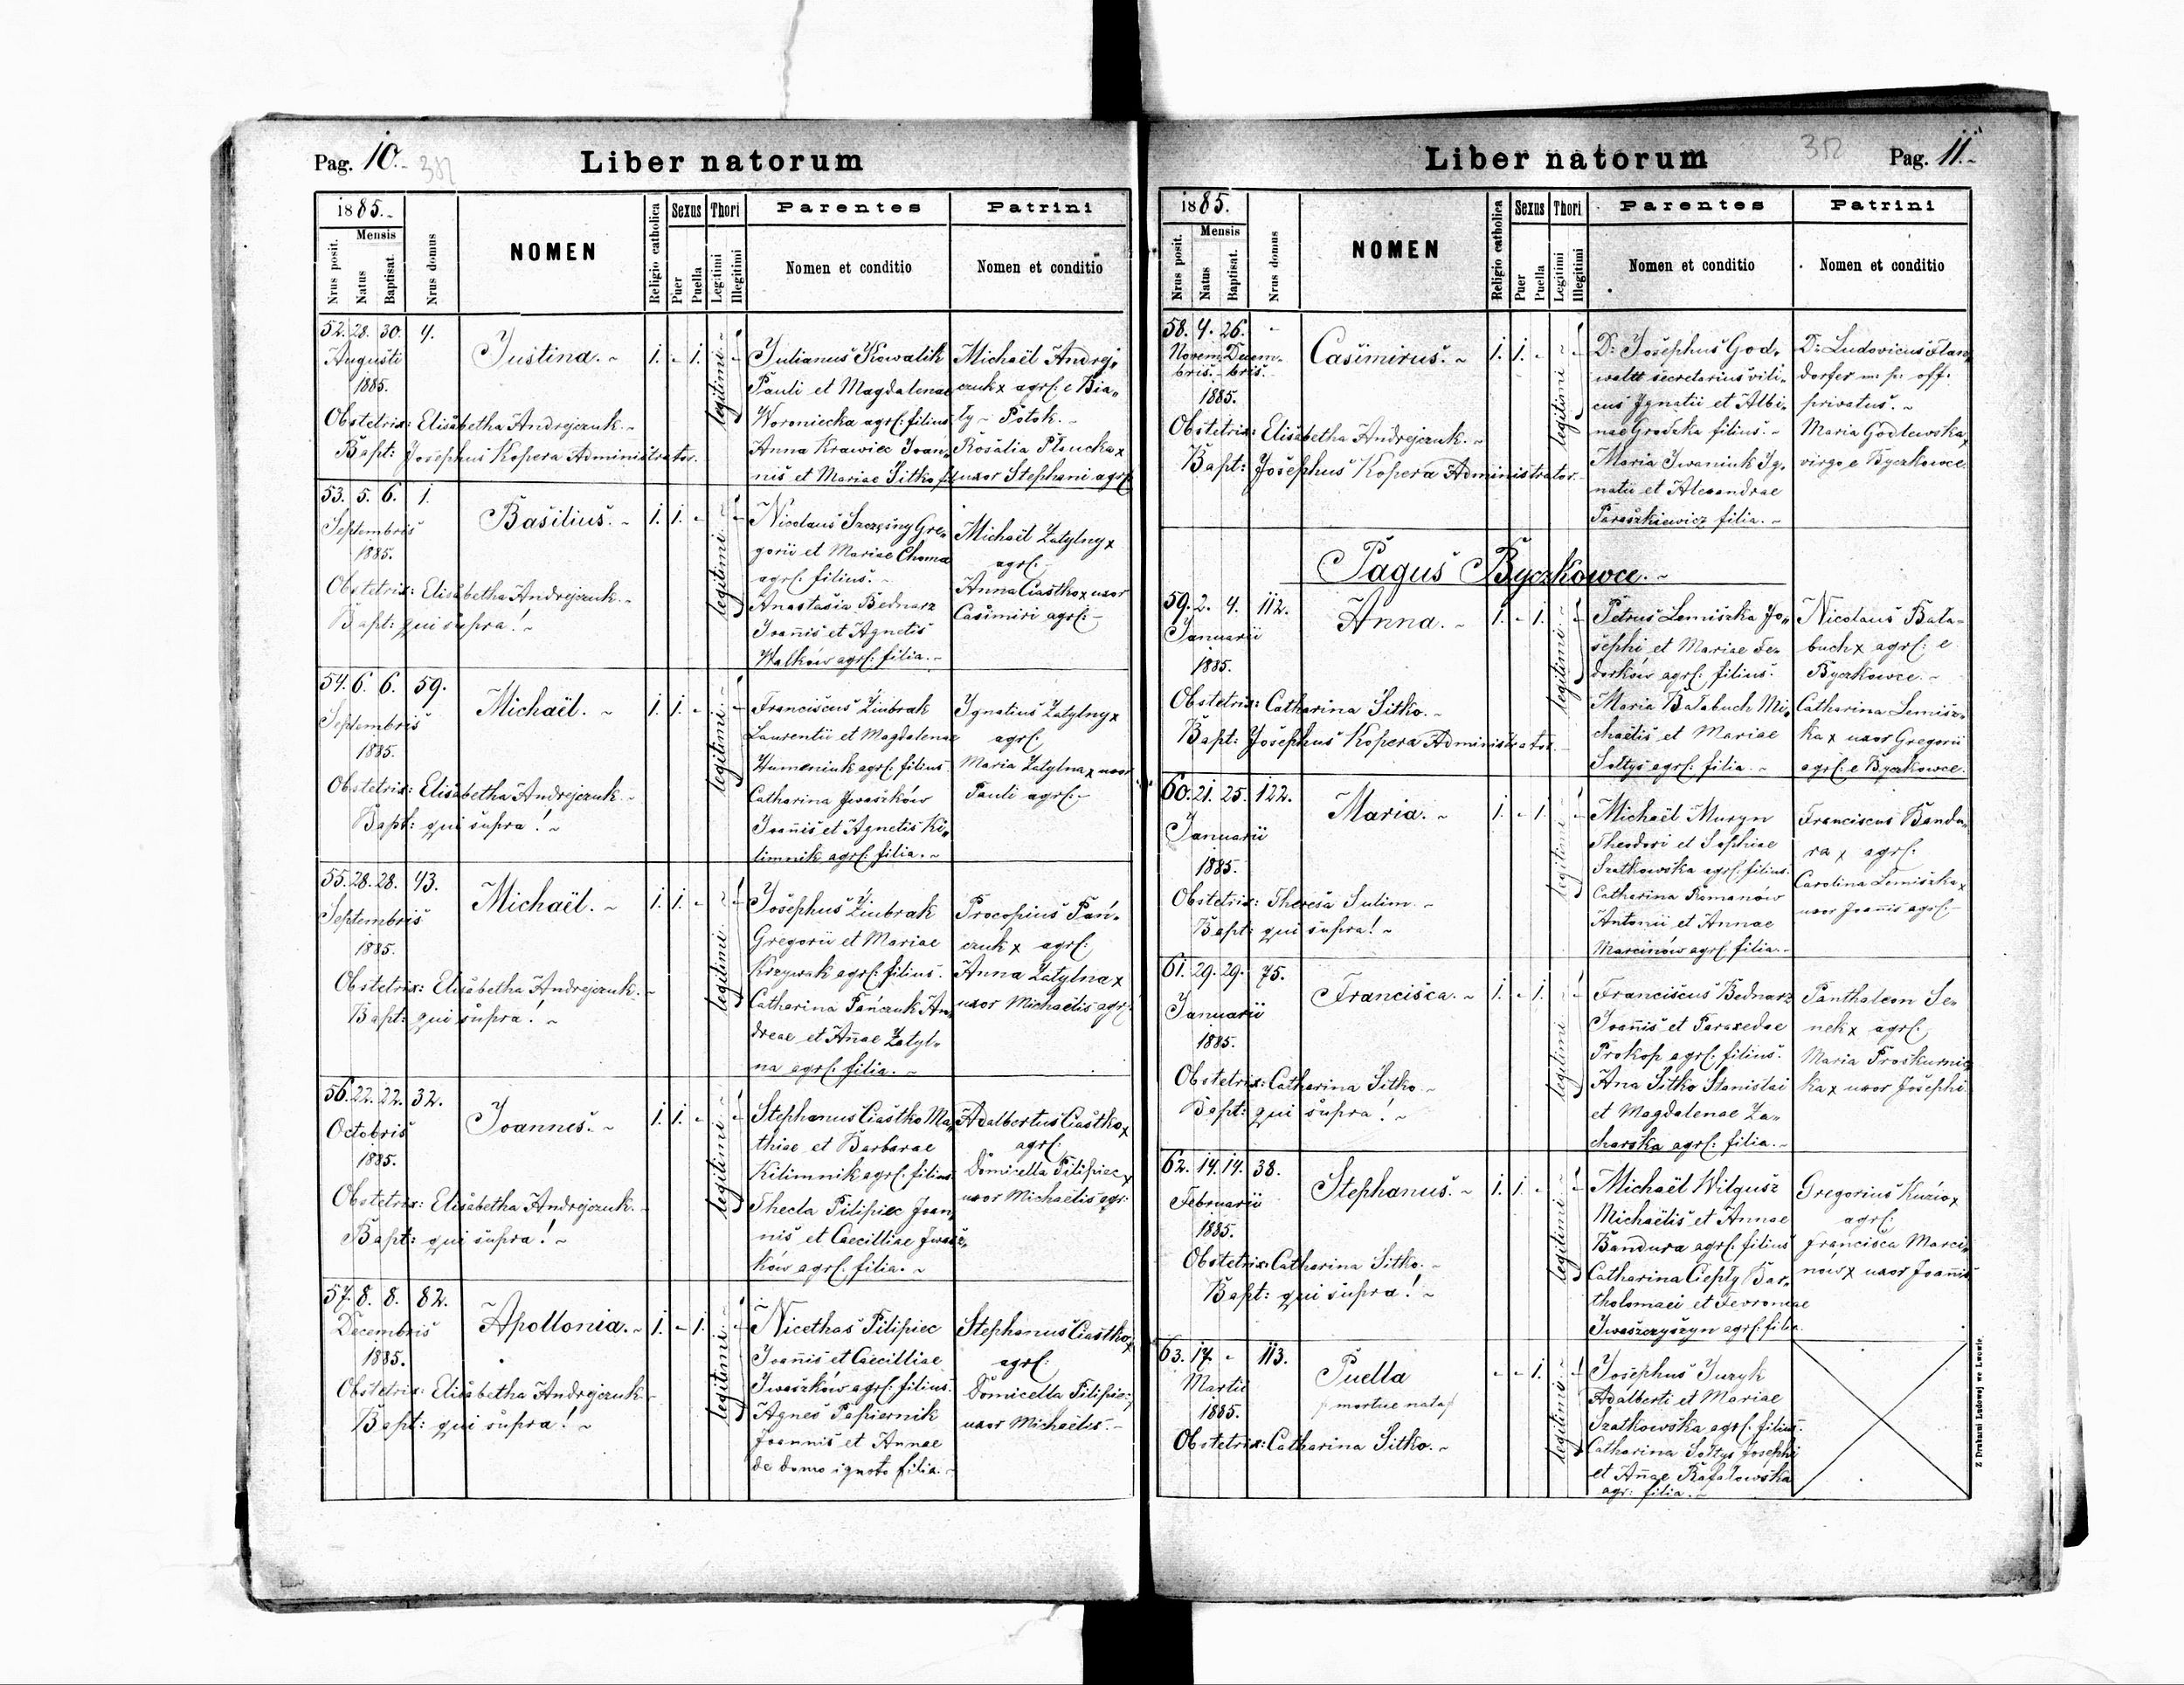 Pag. 10.
Liber natorum
1885.
Mensis
Nrus posit.
Natus
Baptisat.
Nrus domus
NOMEN
Religio catholica
Sexus
Puer
Puella
Thori
Legitimi
Illegitimi
Parentes
Nomen et conditio
Patrini
Nomen et conditio
52. 28. 30. 4.
Augusti
1885.
Obstetrix: Elisabetha Andrejczuk.
Bapt: Josephus Kopera Administrator.
Justina.
1. - 1.
legitimi
Julianus Kowalik
Pauli et Magdalenae
Woroniecka agrl. filius
Anna Krawiec Joan„
nis et Mariae Sitko fil
Michaël Andrej„
czuk x agrl. e Bia„
ły Potok.
Rosalia Płaucka x
uxor Stephani agrl.
53. 5. 6. 1.
Septembris
1885.
Obstetrix: Elisabetha Andrejczuk.
Bapt: qui supra!
Basilius.
1. 1. -
legitimi
Nicolaus Szczęsny Gre„
gorii et Mariae Choma
agrl. filius.
Anastasia Bednarz
Joañis et Agnetis
Walków agrl. filia.
Michaël Zatylny x
agrl.
Anna Ciastko x uxor
Casimiri agrl.
54. 6. 6. 59.
Septembris
1885.
Obstetrix: Elisabetha Andrejczuk.
Bapt: qui supra!
Michaël.
1. 1. -
legitimi
Franciscus Ziubrak
Laurentii et Magdalenae
Humeniuk agrl. filius
Catharina Iwaszków
Joañis et Agnetis Ki„
limnik agrl. filia.
Ignatius Zatylny x
agrl.
Maria Zatylna x uxor
Pauli agrl.
55. 28. 28. 43.
Septembris
1885.
Obstetrix: Elisabetha Andrejczuk.
Bapt: qui supra!
Michaël.
1. 1. -
legitimi
Josephus Ziubrak
Gregorii et Mariae
Krzywak agrl. filius.
Catharina Pańczuk An„
dreae et Añae Zatyl„
na agrl. filia.
Procopius Pań„
czuk x agrl.
Anna Zatylna x
uxor Michaëlis agrl.
56. 22. 22. 32.
Octobris
1885.
Obstetrix: Elisabetha Andrejczuk.
Bapt: qui supra!
Joannes.
1. 1. -
legitimi
Stephanus Ciastko Ma„
thiae et Barbarae
Kilimnik agrl. filius
Thecla Pilipiec Joan„
nis et Caecilliae Iwasz„
ków agrl. filia.
Adalbertus Ciastko x
agrl.
Domicella Pilipiec x
uxor Michaëlis agr:
57. 8. 8. 82.
Decembris
1885.
Obstetrix: Elisabetha Andrejczuk
Bapt: qui supra!
Apollonia.
1. - 1.
legitimi
Nicethas Pilipiec
Joañis et Caecilliae
Iwaszków agrl. filius.
Agnes Papiernik
Joannis et Annae
de domo ignoto filia.
Stephanus Ciastko x
agrl.
Domicella Pilipiec
uxor Michaëlis.
Liber natorum
Pag. 11.
1885.
Mensis
Nrus posit.
Natus
Baptisat.
Nrus domus
NOMEN
Religio catholica
Sexus
Puer
Puella
Thori
Legitimi
Illegitimi
Parentes
Nomen et conditio
Patrini
Nomen et conditio
58. 4. 26. -
Novem„ Decem„
bris. bris.
1885.
Obstetrix: Elisabetha Andrejczuk.
Bapt: Josephus Kopera Administrator.
Casimirus.
1. 1. -
legitimi
D: Josephus God„
waltt secretarius vili„
cus Ignatii et Albi„
nae Grodzka filius.
Maria Iwaniuk Ig„
natii et Alexandrae
Paraszkiewicz filia.
D: Ludovicus Flan„
dorfer m. p. off.
privatus.
Maria Godlewska x
virgo e Byczkowce.
Pagus Byczkowce.
59. 2. 4. 112.
Januarii
1885.
Obstetrix: Catharina Sitko.
Bapt: Josephus Kopera Administrator.
Anna.
1. - 1.
legitimi
Petrus Lemiszka Jo„
sephi et Mariae Fe„
dorków agrl. filius.
Maria Bałabuch Mi„
chaëlis et Mariae
Sołtys agrl. filia.
Nicolaus Bała-
buch x agrl: e
Byczkowce.
Catharina Lemisz„
ka x uxor Gregorii
agrl. e Byczkowce.
60. 21. 25. 122.
Januarii
1885.
Obstetrix: Theresa Sulim.
Bapt: qui supra!
Maria.
1. - 1.
legitimi
Michaël Muryn
Theodori et Sophiae
Szatkowska agrl. filius.
Catharina Romanów
Antonii et Annae
Marcinów agrl. filia.
Franciscus Bandu„
ra x agrl.
Carolina Lemiszka x
uxor Joannis agrl.
61. 29. 29. 75.
Januarii
1885.
Obstetrix: Catharina Sitko.
Bapt: qui supra!
Francisca.
1. - 1.
legitimi
Franciscus Bednarz
Joañis et Paraxedae
Prokop agrl. filius.
Ana Sitko Stanislai
et Magdalenae Za„
charska agrl. filia.
Panthaleon Se„
nek x agrl.
Maria Proskurnic
ka x uxor Josephi
62. 14. 14. 38.
Februarii
1885.
Obstetrix: Catharina Sitko.
Bapt: qui supra!
Stephanus.
1. 1. -
legitimi
Michaël Wilgusz
Michaëlis et Annae
Bandura agrl. filius
Catharina Ciepły Bar„
tholomaei et Fevroniae
Iwaszczyszyn agrl. filia
Gregorius Kuzio x
agrl.
Francisca Marci„
nów x uxor Joannis
63. 17. - 113.
Martii
1885.
Obstetrix: Catharina Sitko.
Puella
/mortue nata/
- - 1.
legitimi
Josephus Juzyk
Adalberti et Mariae
Szatkowska agrl. filius.
Catharina Sołtys Josephi
et Añae Rafałowska
agr: filia.
Z Drukarni Ludowej we Lwowie.